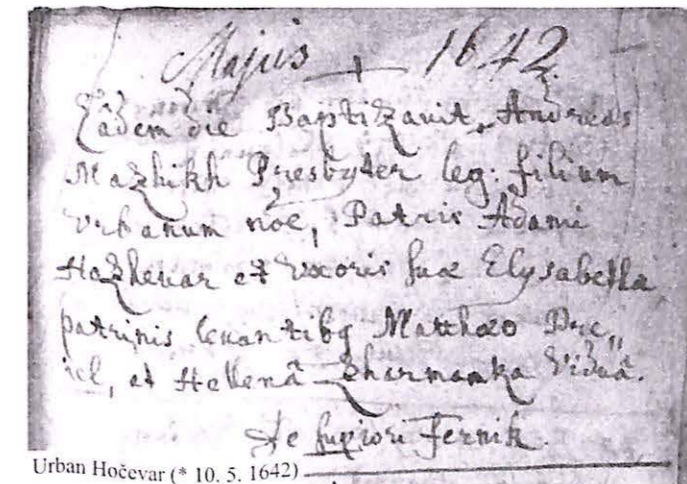 Majus + 1642
Eadem die Baptizavit Andreas
Mazhikh Presbyter leg: filium
Vrbanum nõe, Patris Adami
Hazhevar et Vxoris suæ Elysabetha
patrinis levantibq Matthæo Pre„
iel, et Hellenâ Zharmanka Viduâ.
de supiori Fernik.
Urban Hočevar (* 10. 5. 1642)